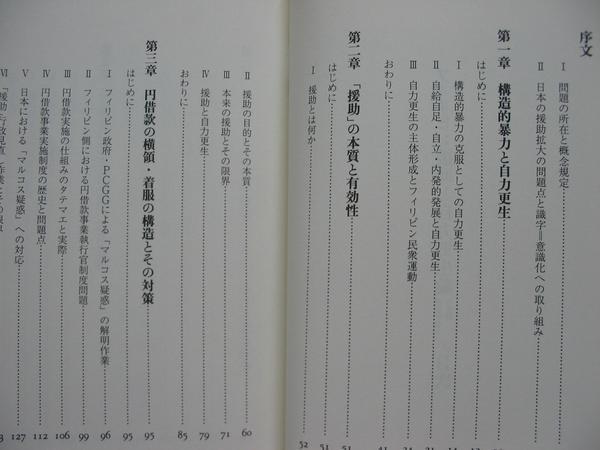 序文
Ⅰ 問題の所在と概念規定
Ⅱ 日本の援助拡大の問題点と識字=意識化への取り組み
第一章 構造的暴力と自力更生
はじめに
Ⅰ 構造的暴力の克服としての自力更生
Ⅱ 自給自足・自立・内発的発展と自力更生
Ⅲ 自力更生の主体形成とフィリピン民衆運動
おわりに
第二章 「援助」の本質と有効性 51
はじめに 51
Ⅰ 援助とは何か 52
Ⅱ 援助の目的とその本質 60
Ⅲ 本来の援助とその限界 71
Ⅳ 援助と自力更生 79
おわりに 85
第三章 円借款の横領・着服の構造とその対策 95
はじめに 95
Ⅰ フィリピン政府・PCGGによる「マルコス疑惑」の解明作業 96
Ⅱ フィリピン側における円借款事業執行官制度問題 99
Ⅲ 円借款実施の仕組みのタテマエと実際 106
Ⅳ 円借款事業実施制度の歴史と問題点 112
Ⅴ 日本における「マルコス疑惑」への対応 127
Ⅵ 「援助」行政見直し作業と